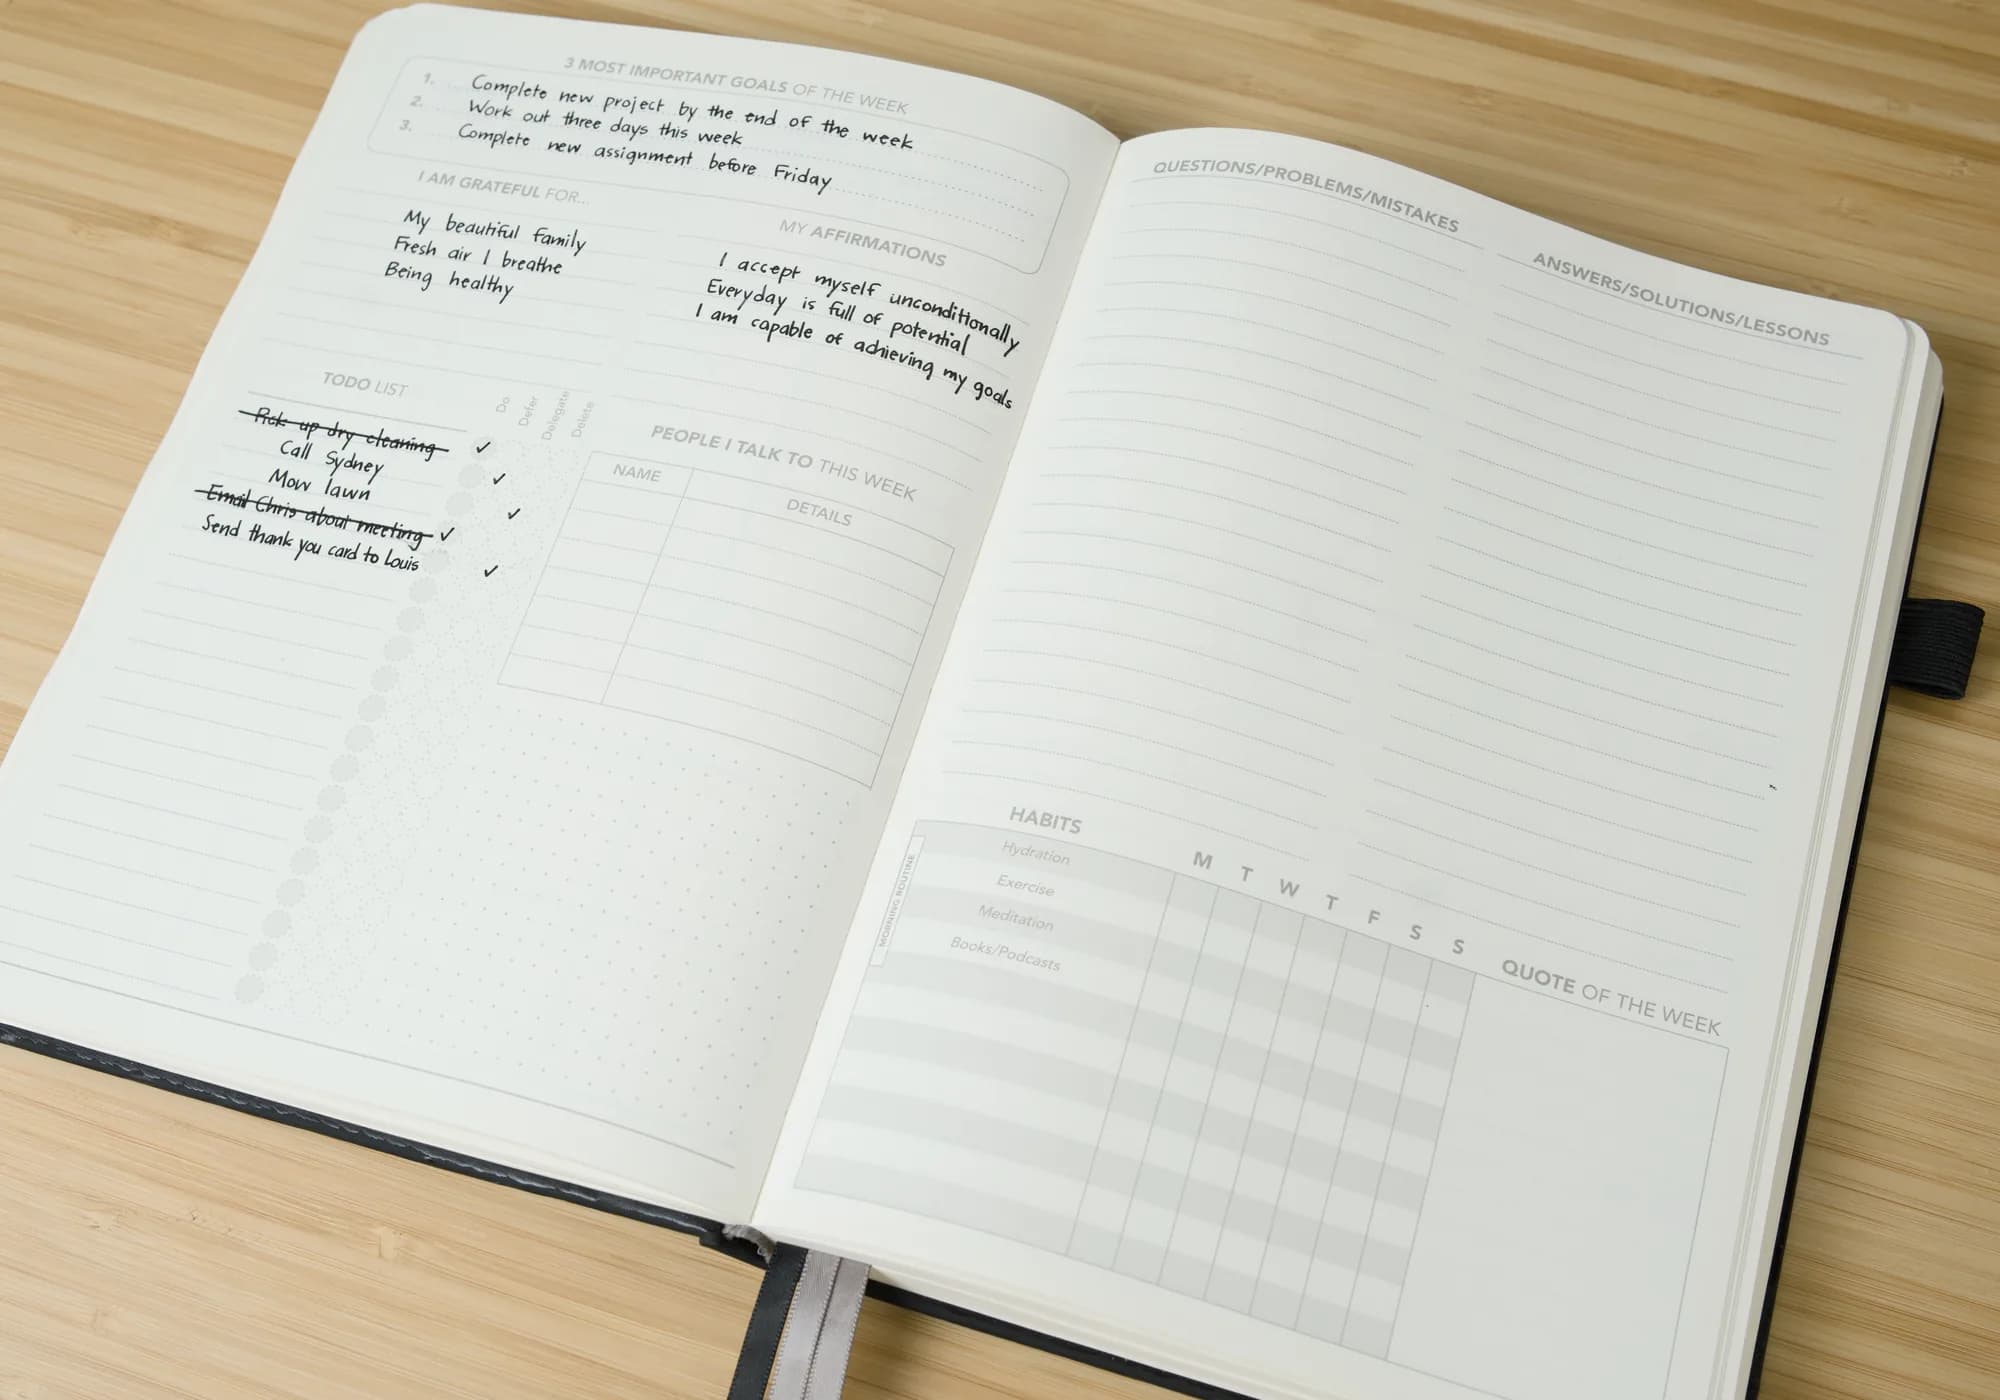 3 MOST IMPORTANT GOALS OF THE WEEK
1. Complete new project by the end of the week
2. Work out three days this week
3. Complete new assignment before Friday
I AM GRATEFUL FOR...
My beautiful family
Fresh air I breathe
Being healthy
MY AFFIRMATIONS
I accept myself unconditionally
Everyday is full of potential
I am capable of achieving my goals
TODO LIST
Do
Defer
Delegate
Delete
Pick up dry cleaning ✓
Call Sydney ✓
Mow lawn ✓
Email Chris about meeting ✓
Send thank you card to Louis ✓
PEOPLE I TALK TO THIS WEEK
NAME DETAILS
QUESTIONS/PROBLEMS/MISTAKES
ANSWERS/SOLUTIONS/LESSONS
HABITS
M T W T F S S
MORNING ROUTINE
Hydration
Exercise
Meditation
Books/Podcasts
QUOTE OF THE WEEK